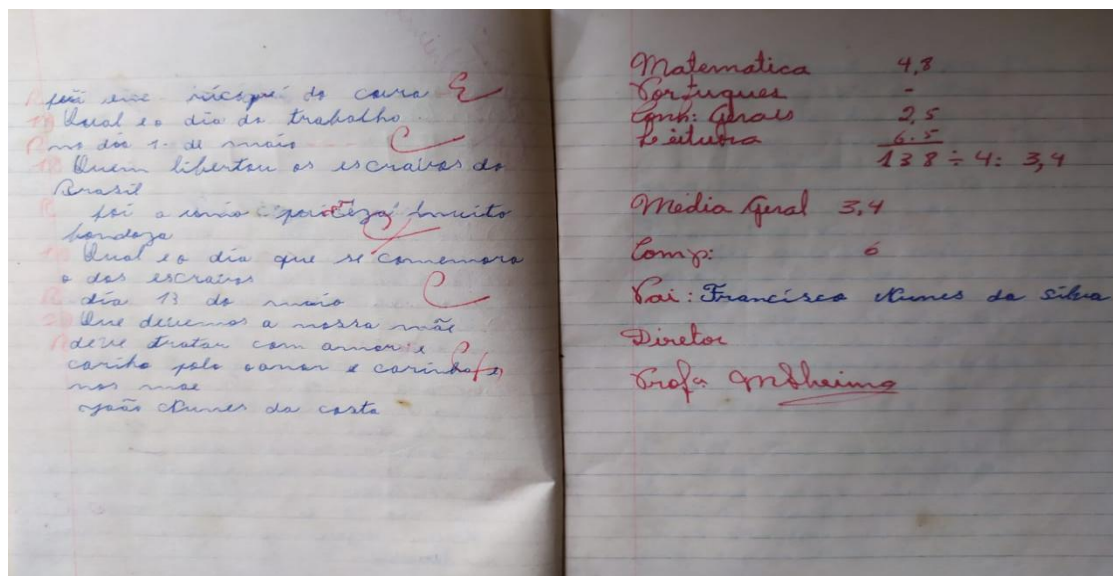 R
Qual e o dia do trabalho
R no dia 1. de maio C
Quem libertou os escravos do
Brasil
R foi a uma muito
bondoza
Qual e o dia que se comemora
o dos escravos
R dia 13 do maio C
Que devemos a nossa mãe
R deve tratar com amor e
carinho pelo e carinho
nos mae
João Nunes da costa
Matematica 4,8
Portugues -
Conh: Gerais 2,5
Leitura 6.5
138 ÷ 4: 3,4
Media Geral 3,4
Comp: 6
Pai: Francisco Nunes da Silva
Diretor
Profª